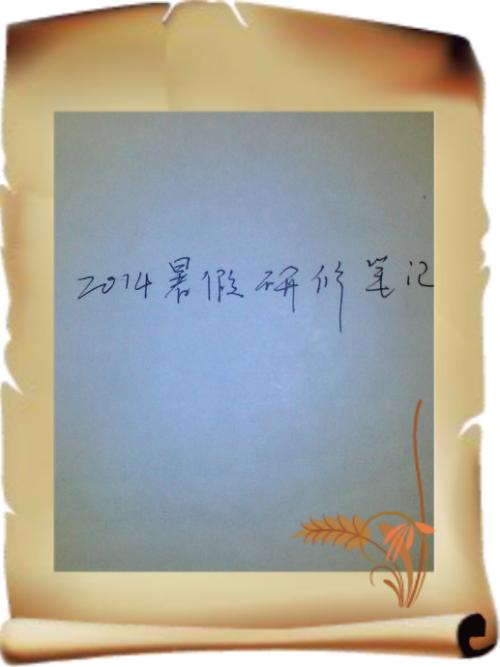 2014暑假研修笔记